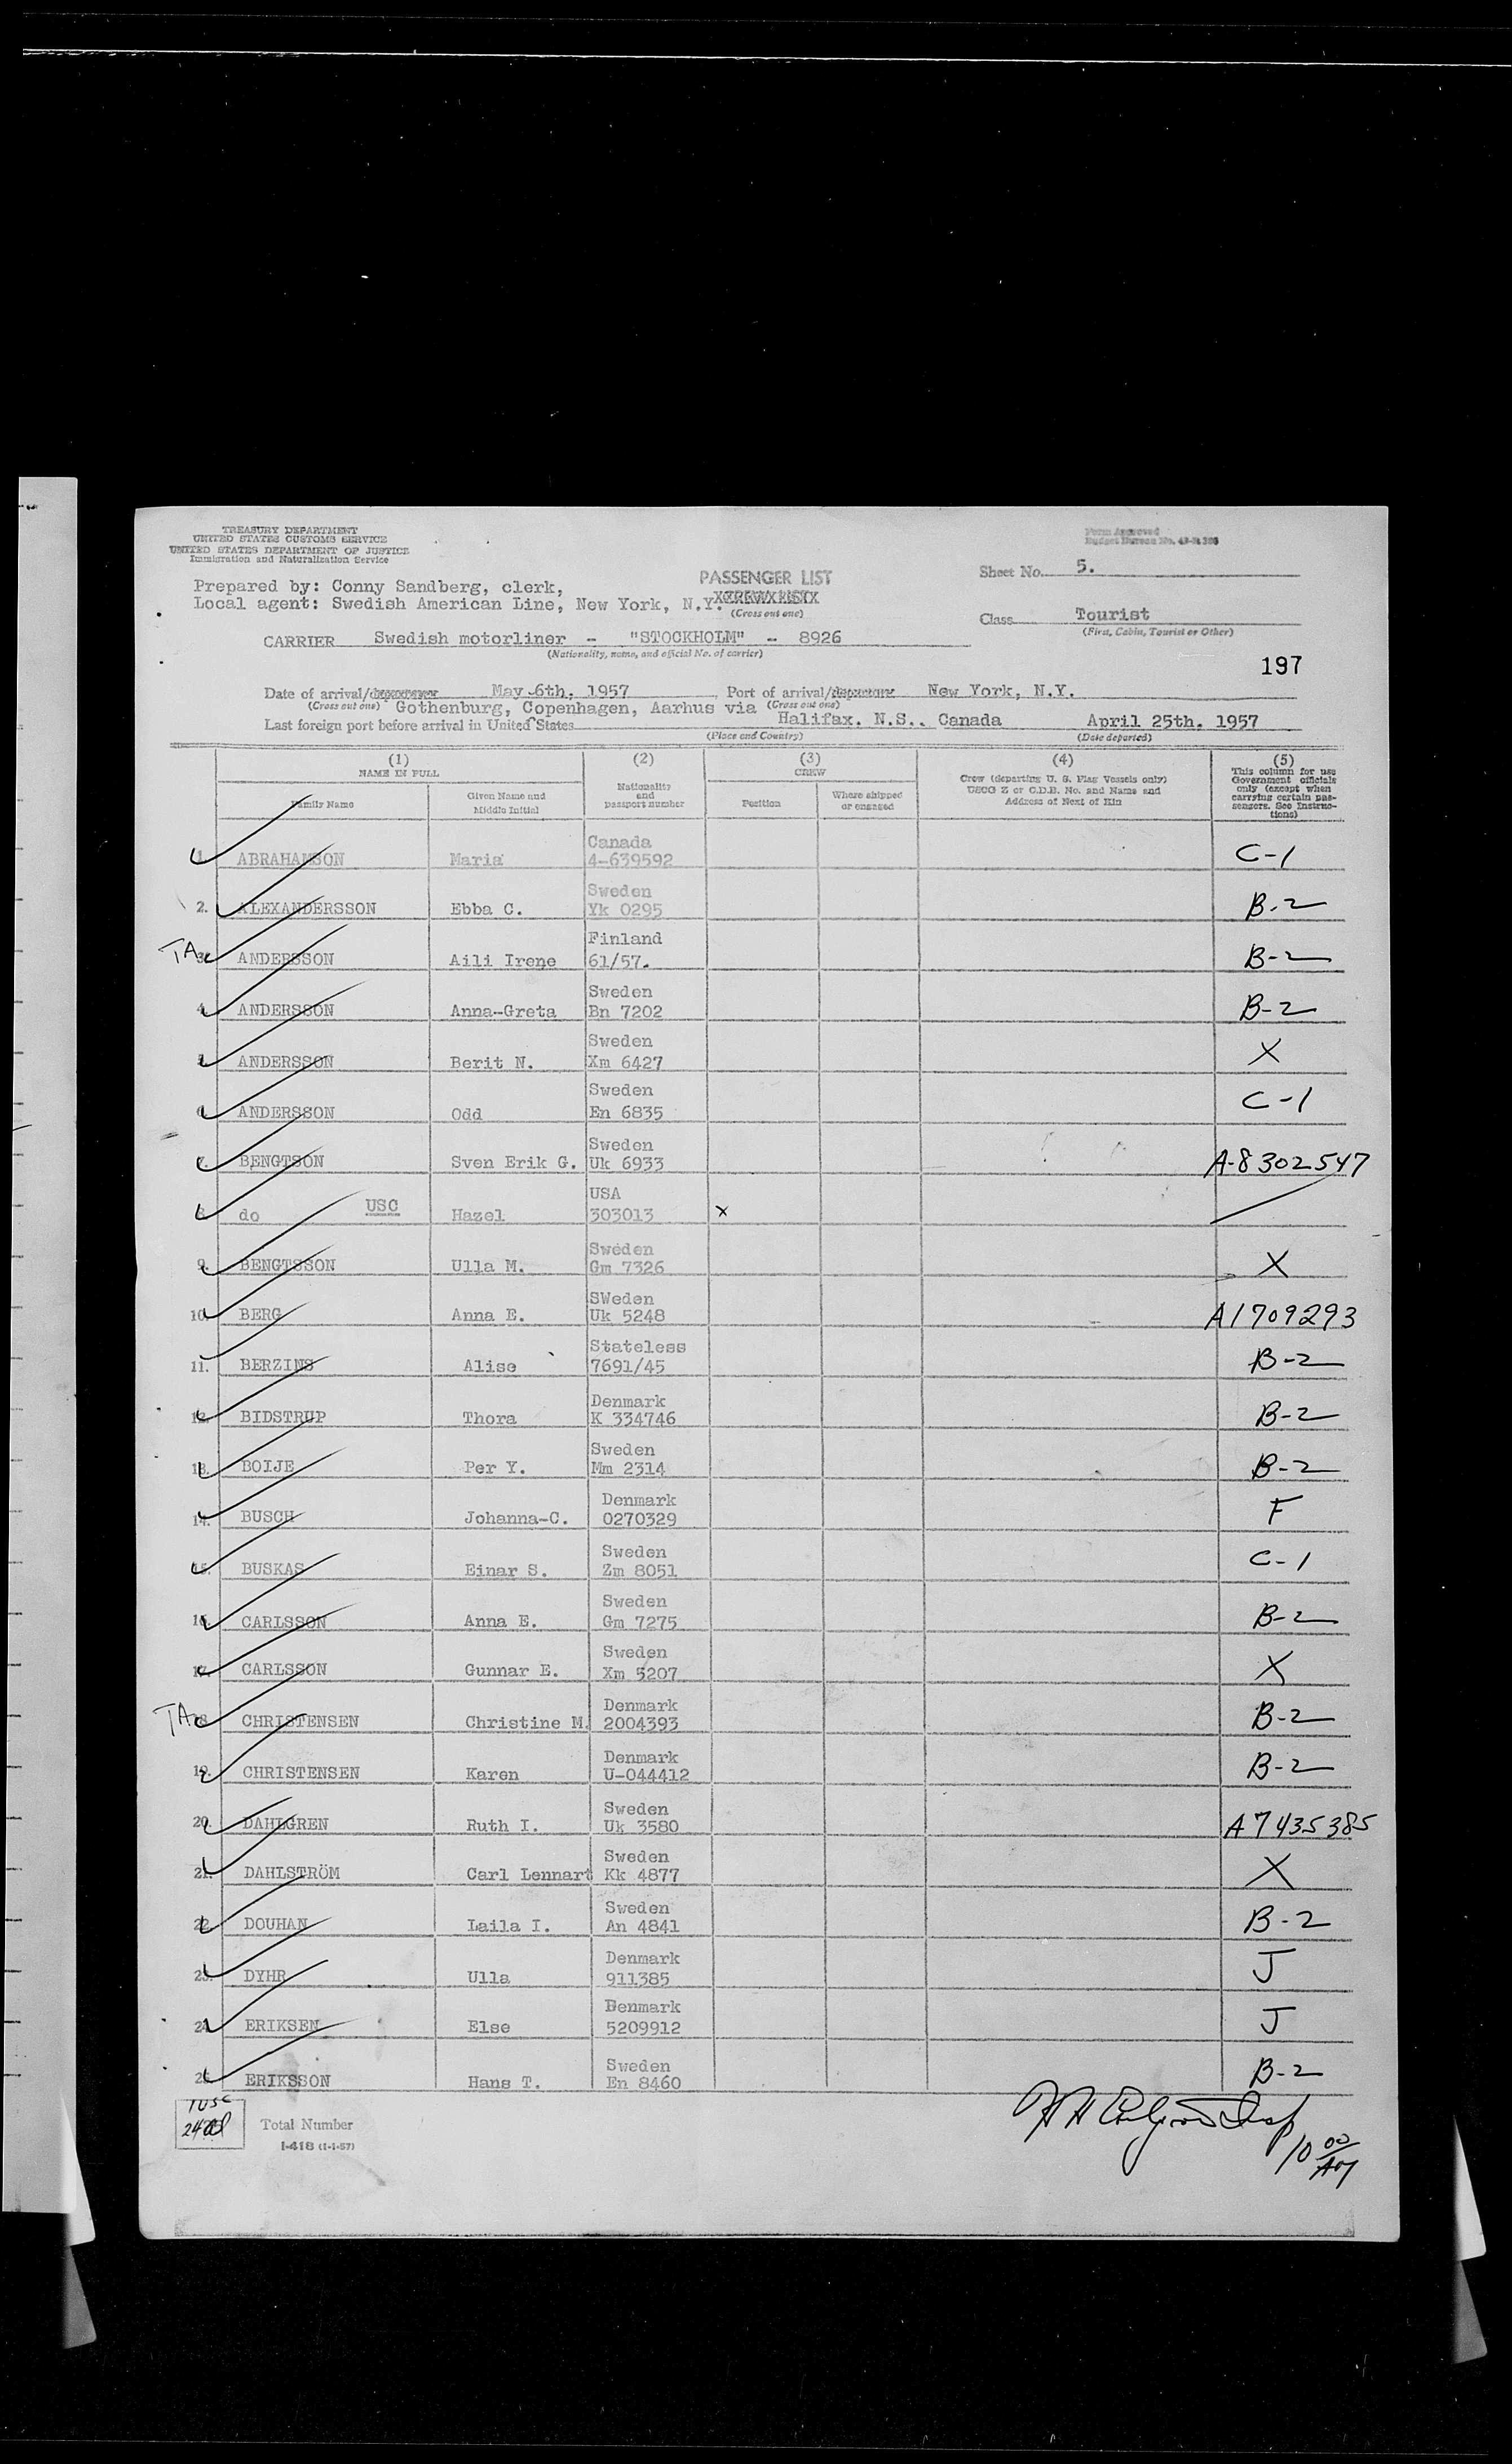 TREASURY DEPARTMENT
UNITED STATES CUSTOMS SERVICE
UNITED STATES DEPARTMENT OF JUSTICE
Immigration and Naturalization Service
Form Approved
Budget Bureau No.
Prepared by: Conny Sandberg, clerk,
Local agent: Swedish American Line, New York, N.Y.
PASSENGER LIST
XCREWXLISTX
(Cross out one)
Sheet No. 5.
Class Tourist
(First, Cabin, Tourist or Other)
CARRIER Swedish motorliner - "STOCKHOLM" - 8926
(Nationality, name, and official No. of carrier)
197
Date of arrival/departure May 6th, 1957 Port of arrival/departure New York, N.Y.
(Cross out one) Gothenburg, Copenhagen, Aarhus via (Cross out one)
Last foreign port before arrival in United States Halifax. N.S.. Canada April 25th. 1957
(Place and Country) (Date departed)
(1) (2) (3) (4) (5)
NAME IN FULL
Family Name
Given Name and Middle Initial
Nationality and passport number
CREW
Position
Where shipped or engaged
Crew (departing U. S. Flag Vessels only)
USCG Z or C.D.B. No. and Name and
Address of Next of Kin
This column for use
Government officials
only (except when
carrying certain pas-
sengers. See Instruc-
tions)
1. ABRAHAMSON Maria Canada 4-639592 C-1
2. ALEXANDERSSON Ebba C. Sweden Yk 0295 B-2
TA 3. ANDERSSON Aili Irene Finland 61/57. B-2
4. ANDERSSON Anna-Greta Sweden Bn 7202 B-2
5. ANDERSSON Berit N. Sweden Xm 6427 X
6. ANDERSSON Odd Sweden En 6835 C-1
7. BENGTSON Sven Erik G. Sweden Uk 6933 A-8302547
8. do USC Hazel USA 303013 x
9. BENGTSSON Ulla M. Sweden Gm 7326 X
10. BERG Anna E. SWeden Uk 5248 A1709293
11. BERZINS Alise Stateless 7691/45 B-2
12. BIDSTRUP Thora Denmark K 334746 B-2
13. BOIJE Per Y. Sweden Mm 2314 B-2
14. BUSCH Johanna-C. Denmark 0270329 F
15. BUSKAS Einar S. Sweden Zm 8051 C-1
16. CARLSSON Anna E. Sweden Gm 7275 B-2
17. CARLSSON Gunnar E. Sweden Xm 5207 X
TA 18. CHRISTENSEN Christine M. Denmark 2004393 B-2
19. CHRISTENSEN Karen Denmark U-044412 B-2
20. DAHLGREN Ruth I. Sweden Uk 3580 A7435385
21. DAHLSTRÖM Carl Lennart Sweden Kk 4877 X
22. DOUHAN Laila I. Sweden An 4841 B-2
23. DYHR Ulla Denmark 911385 J
24. ERIKSEN Else Denmark 5209912 J
25. ERIKSSON Hans T. Sweden En 8460 B-2
1 USC
Total Number
I-418 (1-1-57)
10 00/AM